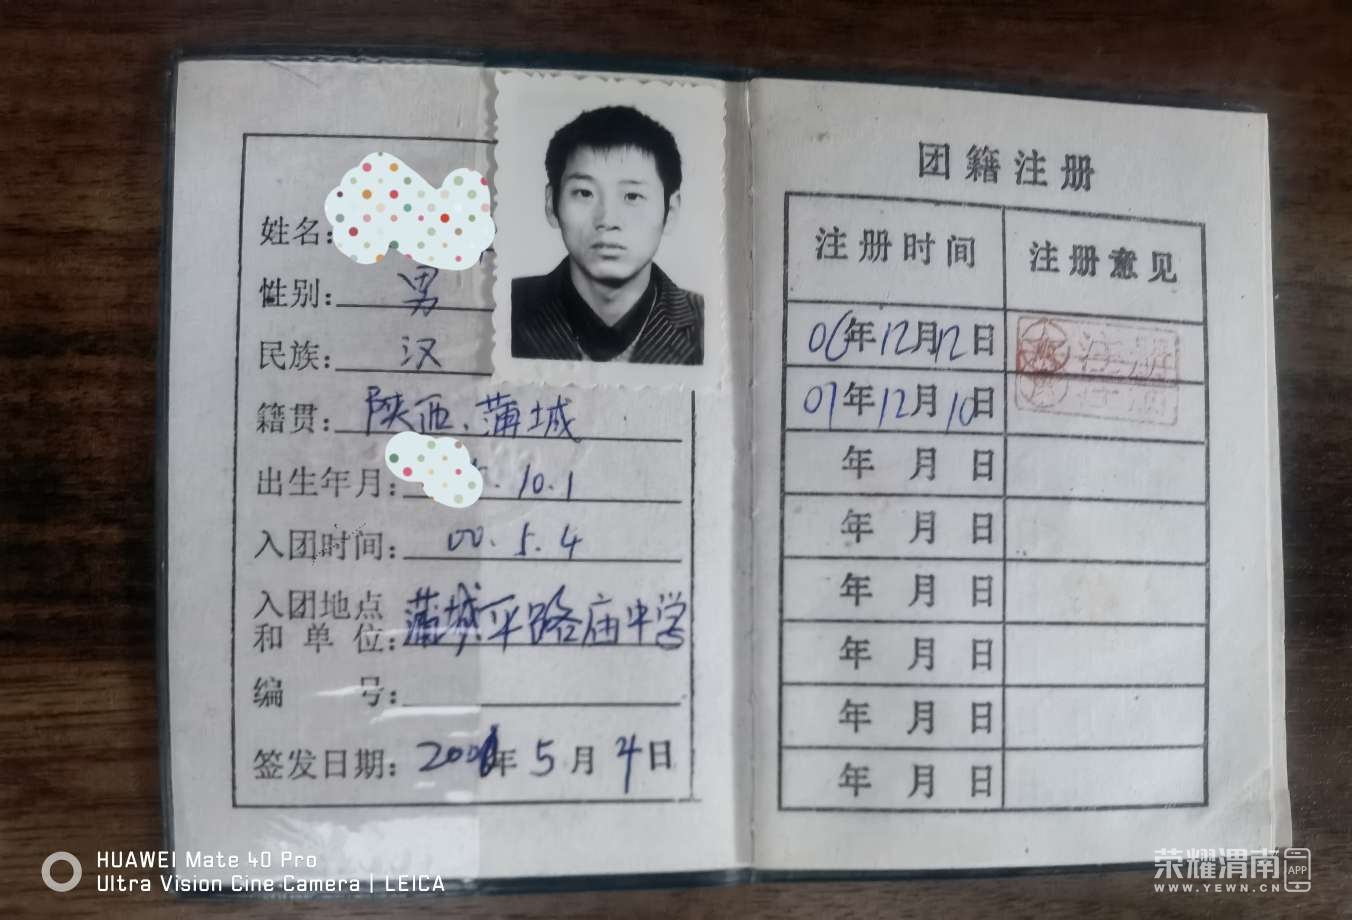 姓名:
性别: 男
民族: 汉
籍贯: 陕西、蒲城
出生年月: 10.1
入团时间: 00.5.4
入团地点
和单位: 蒲城平路庙中学
编号:
签发日期: 2001年5月4日
团籍注册
注册时间 注册意见
06年12月12日 注册
07年12月10日 注册
年月日
年月日
年月日
年月日
年月日
年月日
HUAWEI Mate 40 Pro
Ultra Vision Cine Camera | LEICA
荣耀渭南 APP
WWW.YEWN.CN